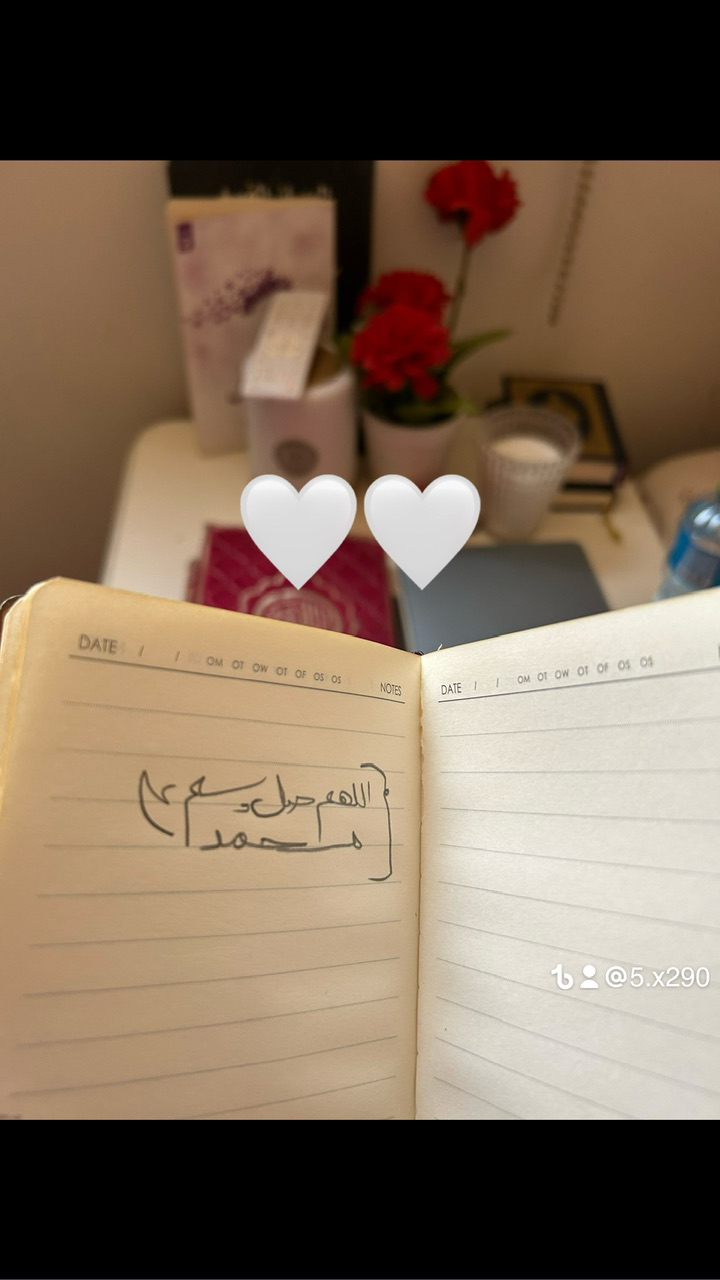 DATE / / OM OT OW OT OF OS OS NOTES
اللهم صل وسلم على
محمد
DATE / / OM OT OW OT OF OS OS
@5.x290